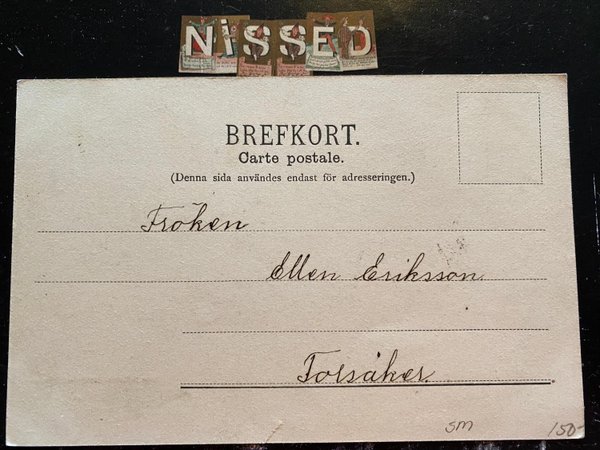 NiSSED
BREFKORT.
Carte postale.
(Denna sida användes endast för adresseringen.)
Fröken
Ellen Eriksson
Torsåker.
SM
150-